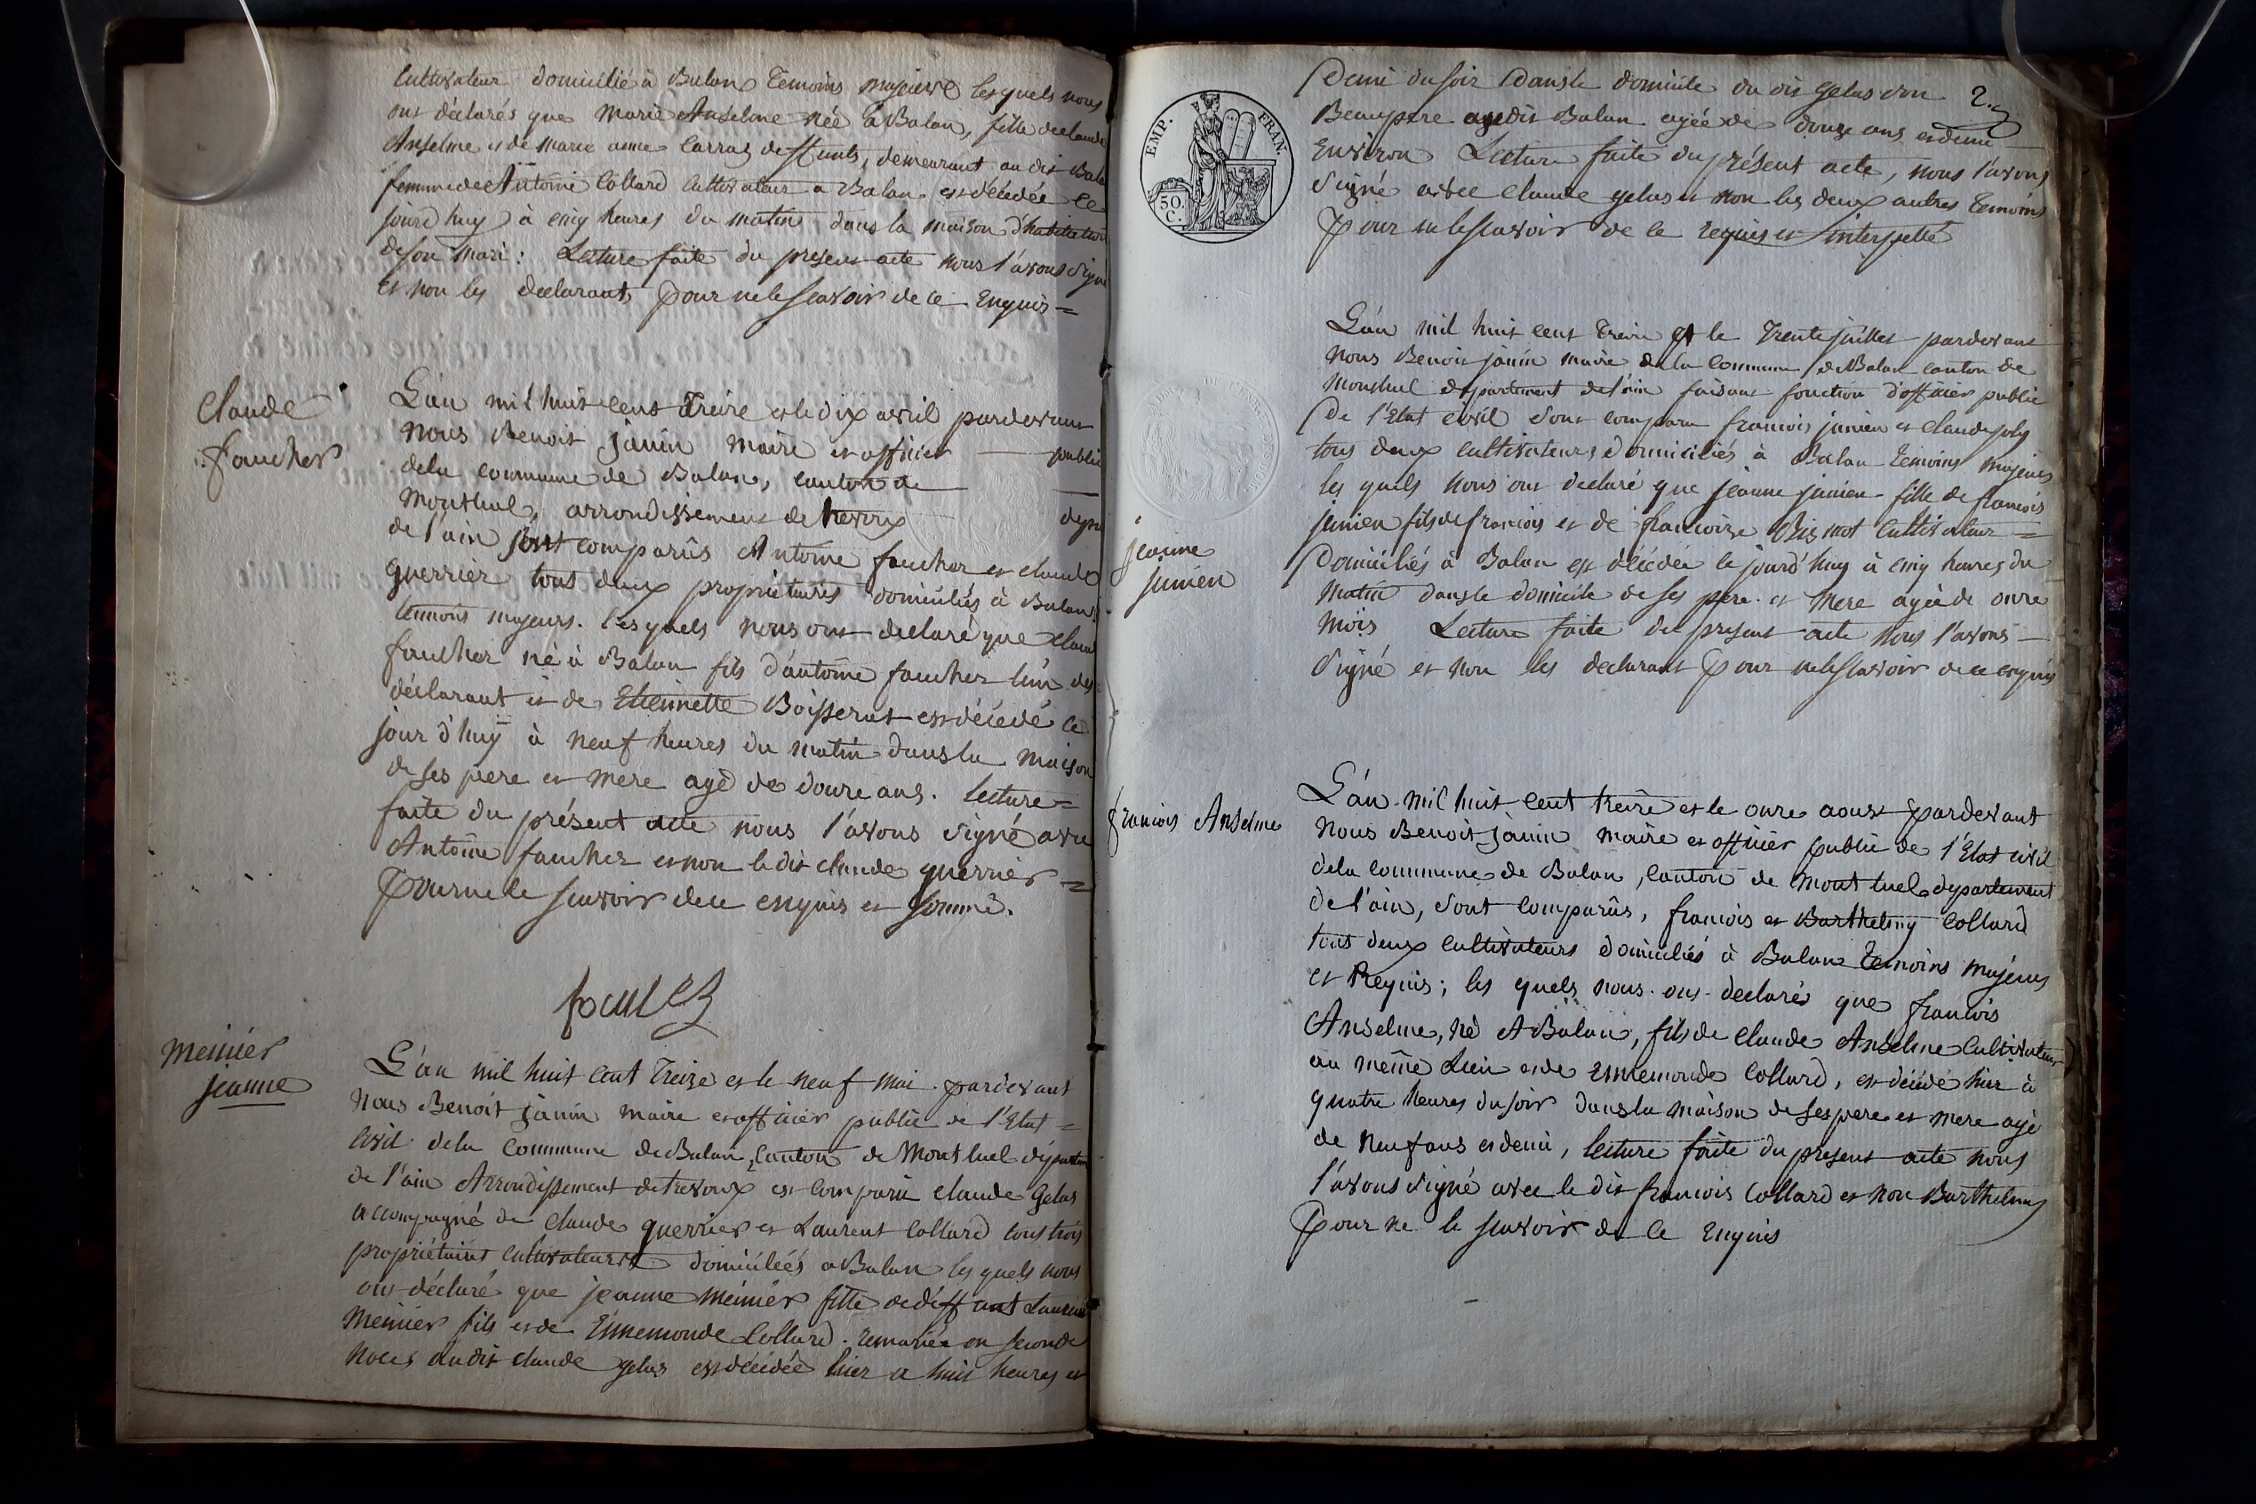 Cultivateur domicilié à Balan temoins majeurs lesquels nous
ont déclarés que Marie Anselme née à Balan, fille de claude
Anselme et de marie anne Carras deffunts, demeurant au dit Balan
femme de Antoine Collard cultivateur a Balan est décédée ce
jourd'huy à cinq heures du matin dans la maison d'habitation
de son mari: Lecture faite du present acte nous l'avons signé
et non les declarants pour ne le scavoir de ce Enquis =
Claude
faucher
L'an mil huit cent Treize et le dix avril pardevant
nous Benoit janin maire et officier — public
de la commune de Balan, canton de —
Montluel, arrondissement de trevoux
de l'ain sont comparûs Antoine faucher et claude
guerrier tout deux propriétaires domiciliés à Balan,
temoins majeurs. lesquels nous ont declaré que claude
faucher né à Balan fils d'antoine faucher l'un des =
déclarant et de Etiennette Boisserat est décédé ce
jour d'huy à neuf heures du matin dans la maison
de ses pere et mere agé de douze ans. lecture =
faite du présent acte nous l'avons signé avec
Antoine faucher et non le dit claude guerrier =
pour ne le scavoir de ce enquis et sommé.
faucher
meinier
jeanne
L'an mil huit cent Treize et le neuf mai pardevant
nous Benoit janin maire et officier public de l'Etat =
civil de la Commune de Balan, Canton de Montluel départem
de l'ain Arrondissement de trevoux est comparu claude Gelas
accompagné de claude guerrier et Laurent Collard tous trois
propriétaires cultivateurs domiciliéés a Balan lesquels nous
ont déclaré que jeanne meinier fille de deffunt Laurent
meinier fils et de Ennemonde Collard remariée en seconde
noces audit claude gelas est décédée hier a huit heures et
2.
Demi du soir Dans le domicile du dit gelas son
Beaupere audit Balan agée de douze ans et demi
Environ Lecture faite du présent acte, nous l'avons
signé avec claude gelas et non les deux autres temoins
pour ne le scavoir de ce requis et interpellé
EMP. FRAN.
50. C.
jeanne
junien
L'an mil huit cent Treize et le Trente juillet pardevant
nous Benoit janin maire de la Commune de Balan canton de
montluel departement de l'ain faisant fonction d'officier public
De l'Etat civil sont comparu francois junien et claude joly
tous deux cultivateurs domiciliés à Balan temoins majeurs
les quels nous ont declaré que jeanne junien fille de francois
junien fils de francois et de francoise cultivateur =
Domiciliés à Balan est décédée ce jourd'huy à cinq heures du
matin dans le domicile de ses pere et mere agée de onze
mois Lecture faite du present acte nous l'avons —
signé et non les declarant pour ne le scavoir de ce enquis
francois Anselme
L'an mil huit cent treize et le onze aoust pardevant
nous Benoit janin maire et officier public de l'Etat civil
de la commune de Balan, canton de montluel departement
de l'ain, sont comparûs, francois et Barthelmy Collard
tous deux cultivateurs domiciliés à Balan temoins majeurs
et Requis; les quels nous ont declaré que francois
Anselme, né A Balan, fils de claude Anselme Cultivateur
au même Lieu et de Ennemonde Collard, est décédé hier à
quatre heures du soir dans la maison de ses pere et mere agé
de neuf ans et demi, lecture faite du present acte nous
l'avons signé avec le dit francois Collard et non Barthelmy
pour ne le scavoir de ce Enquis